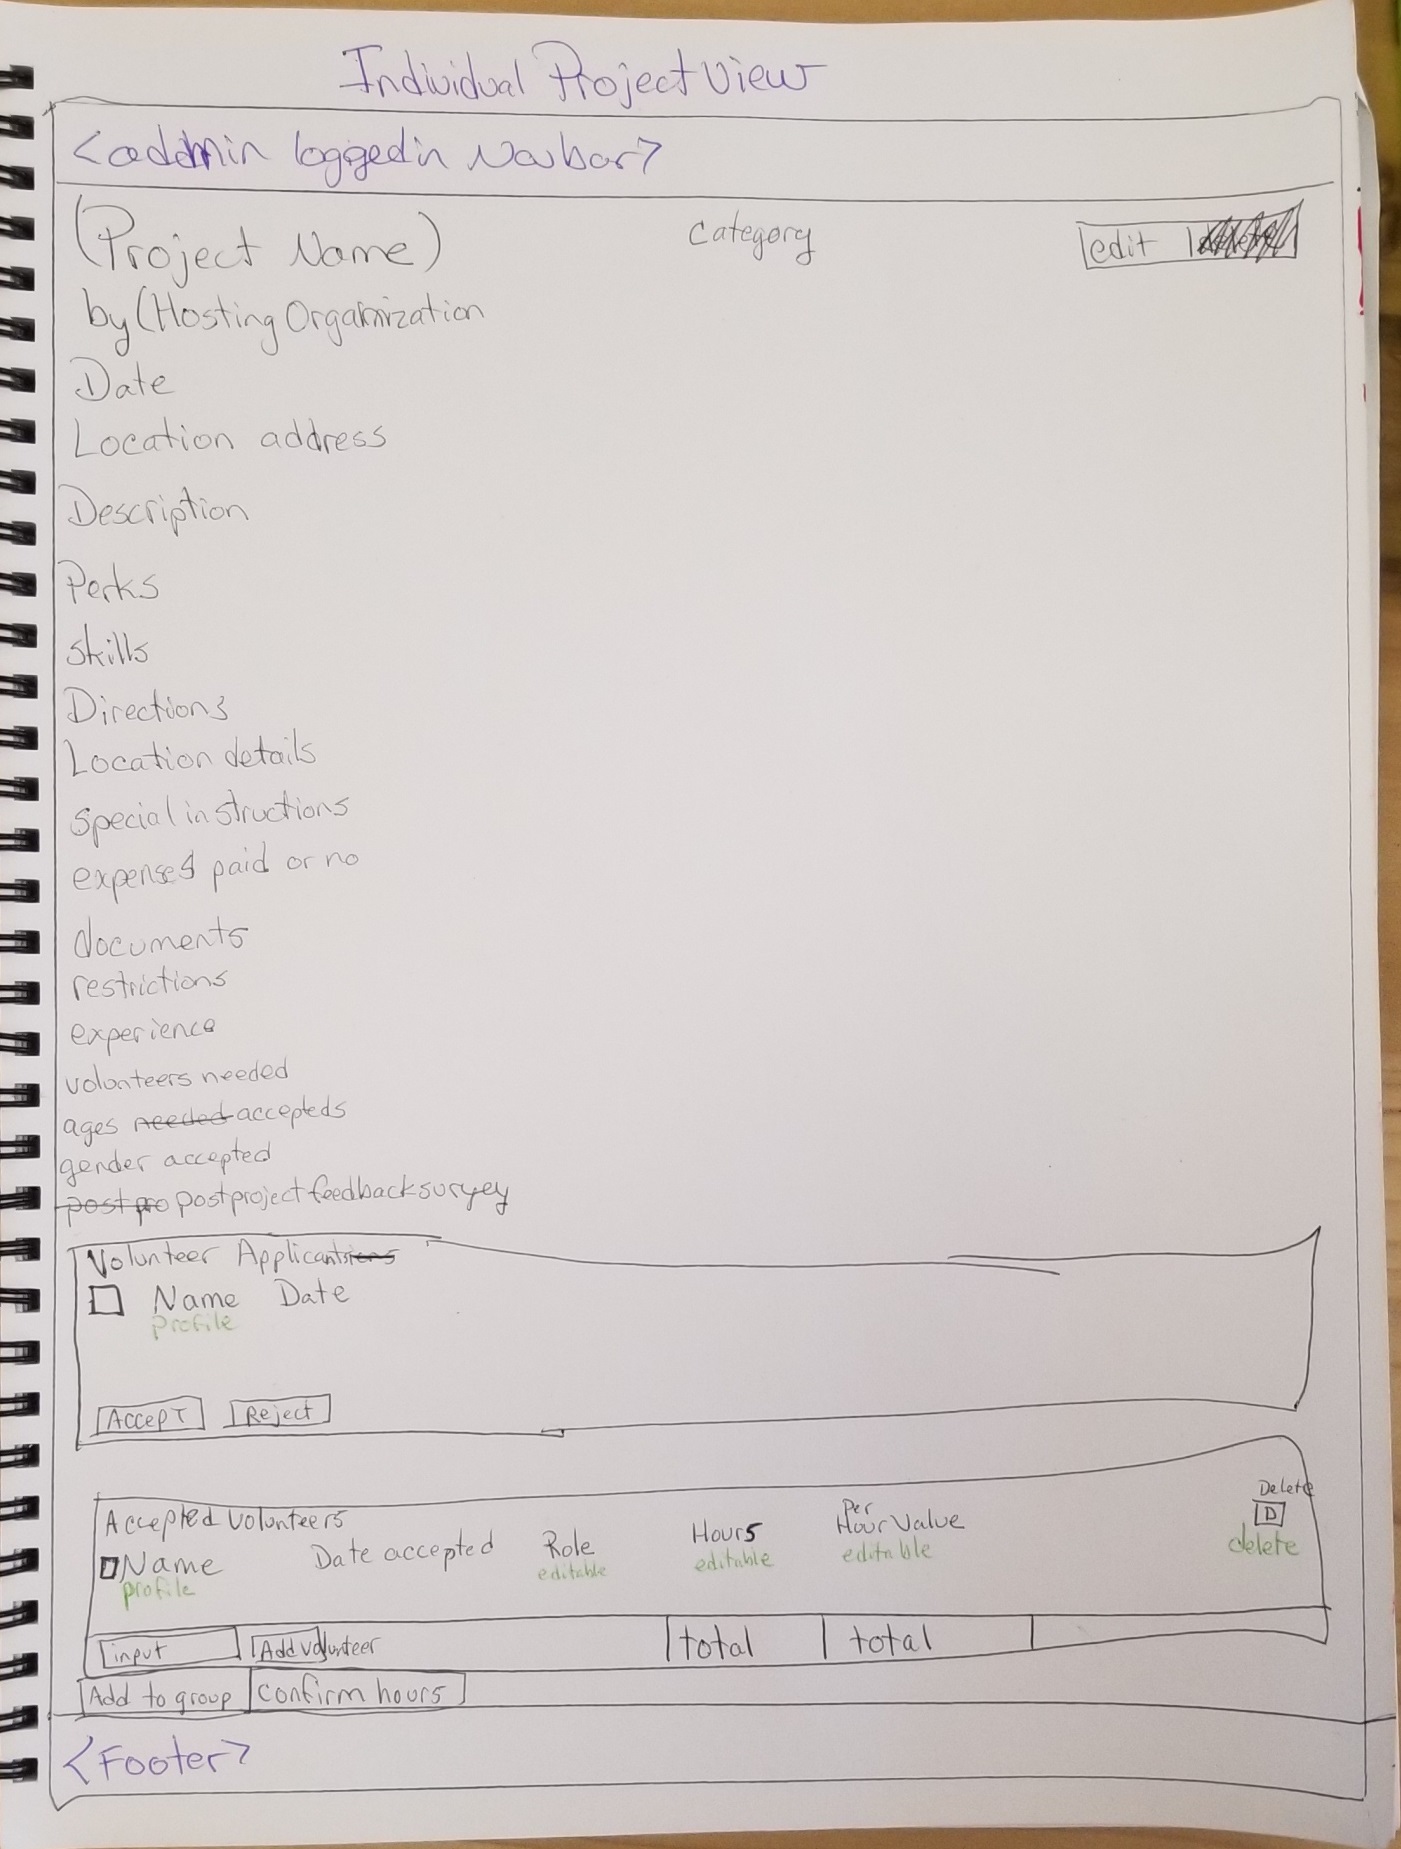 Individual Project View
<admin loggedin Navbar>
(Project Name) Category edit
by (Hosting Organization
Date
Location address
Description
Perks
skills
Directions
Location details
special instructions
expenses paid or no
documents
restrictions
experience
volunteers needed
ages needed accepteds
gender accepted
post pro postproject feedback survey
Volunteer Applicants
Name Date
profile
Accept Reject
Delete
Accepted Volunteers Per D
Name Date accepted Role Hours Hour Value delete
profile editable editable editable
input Add volunteer total total
Add to group confirm hours
<Footer>